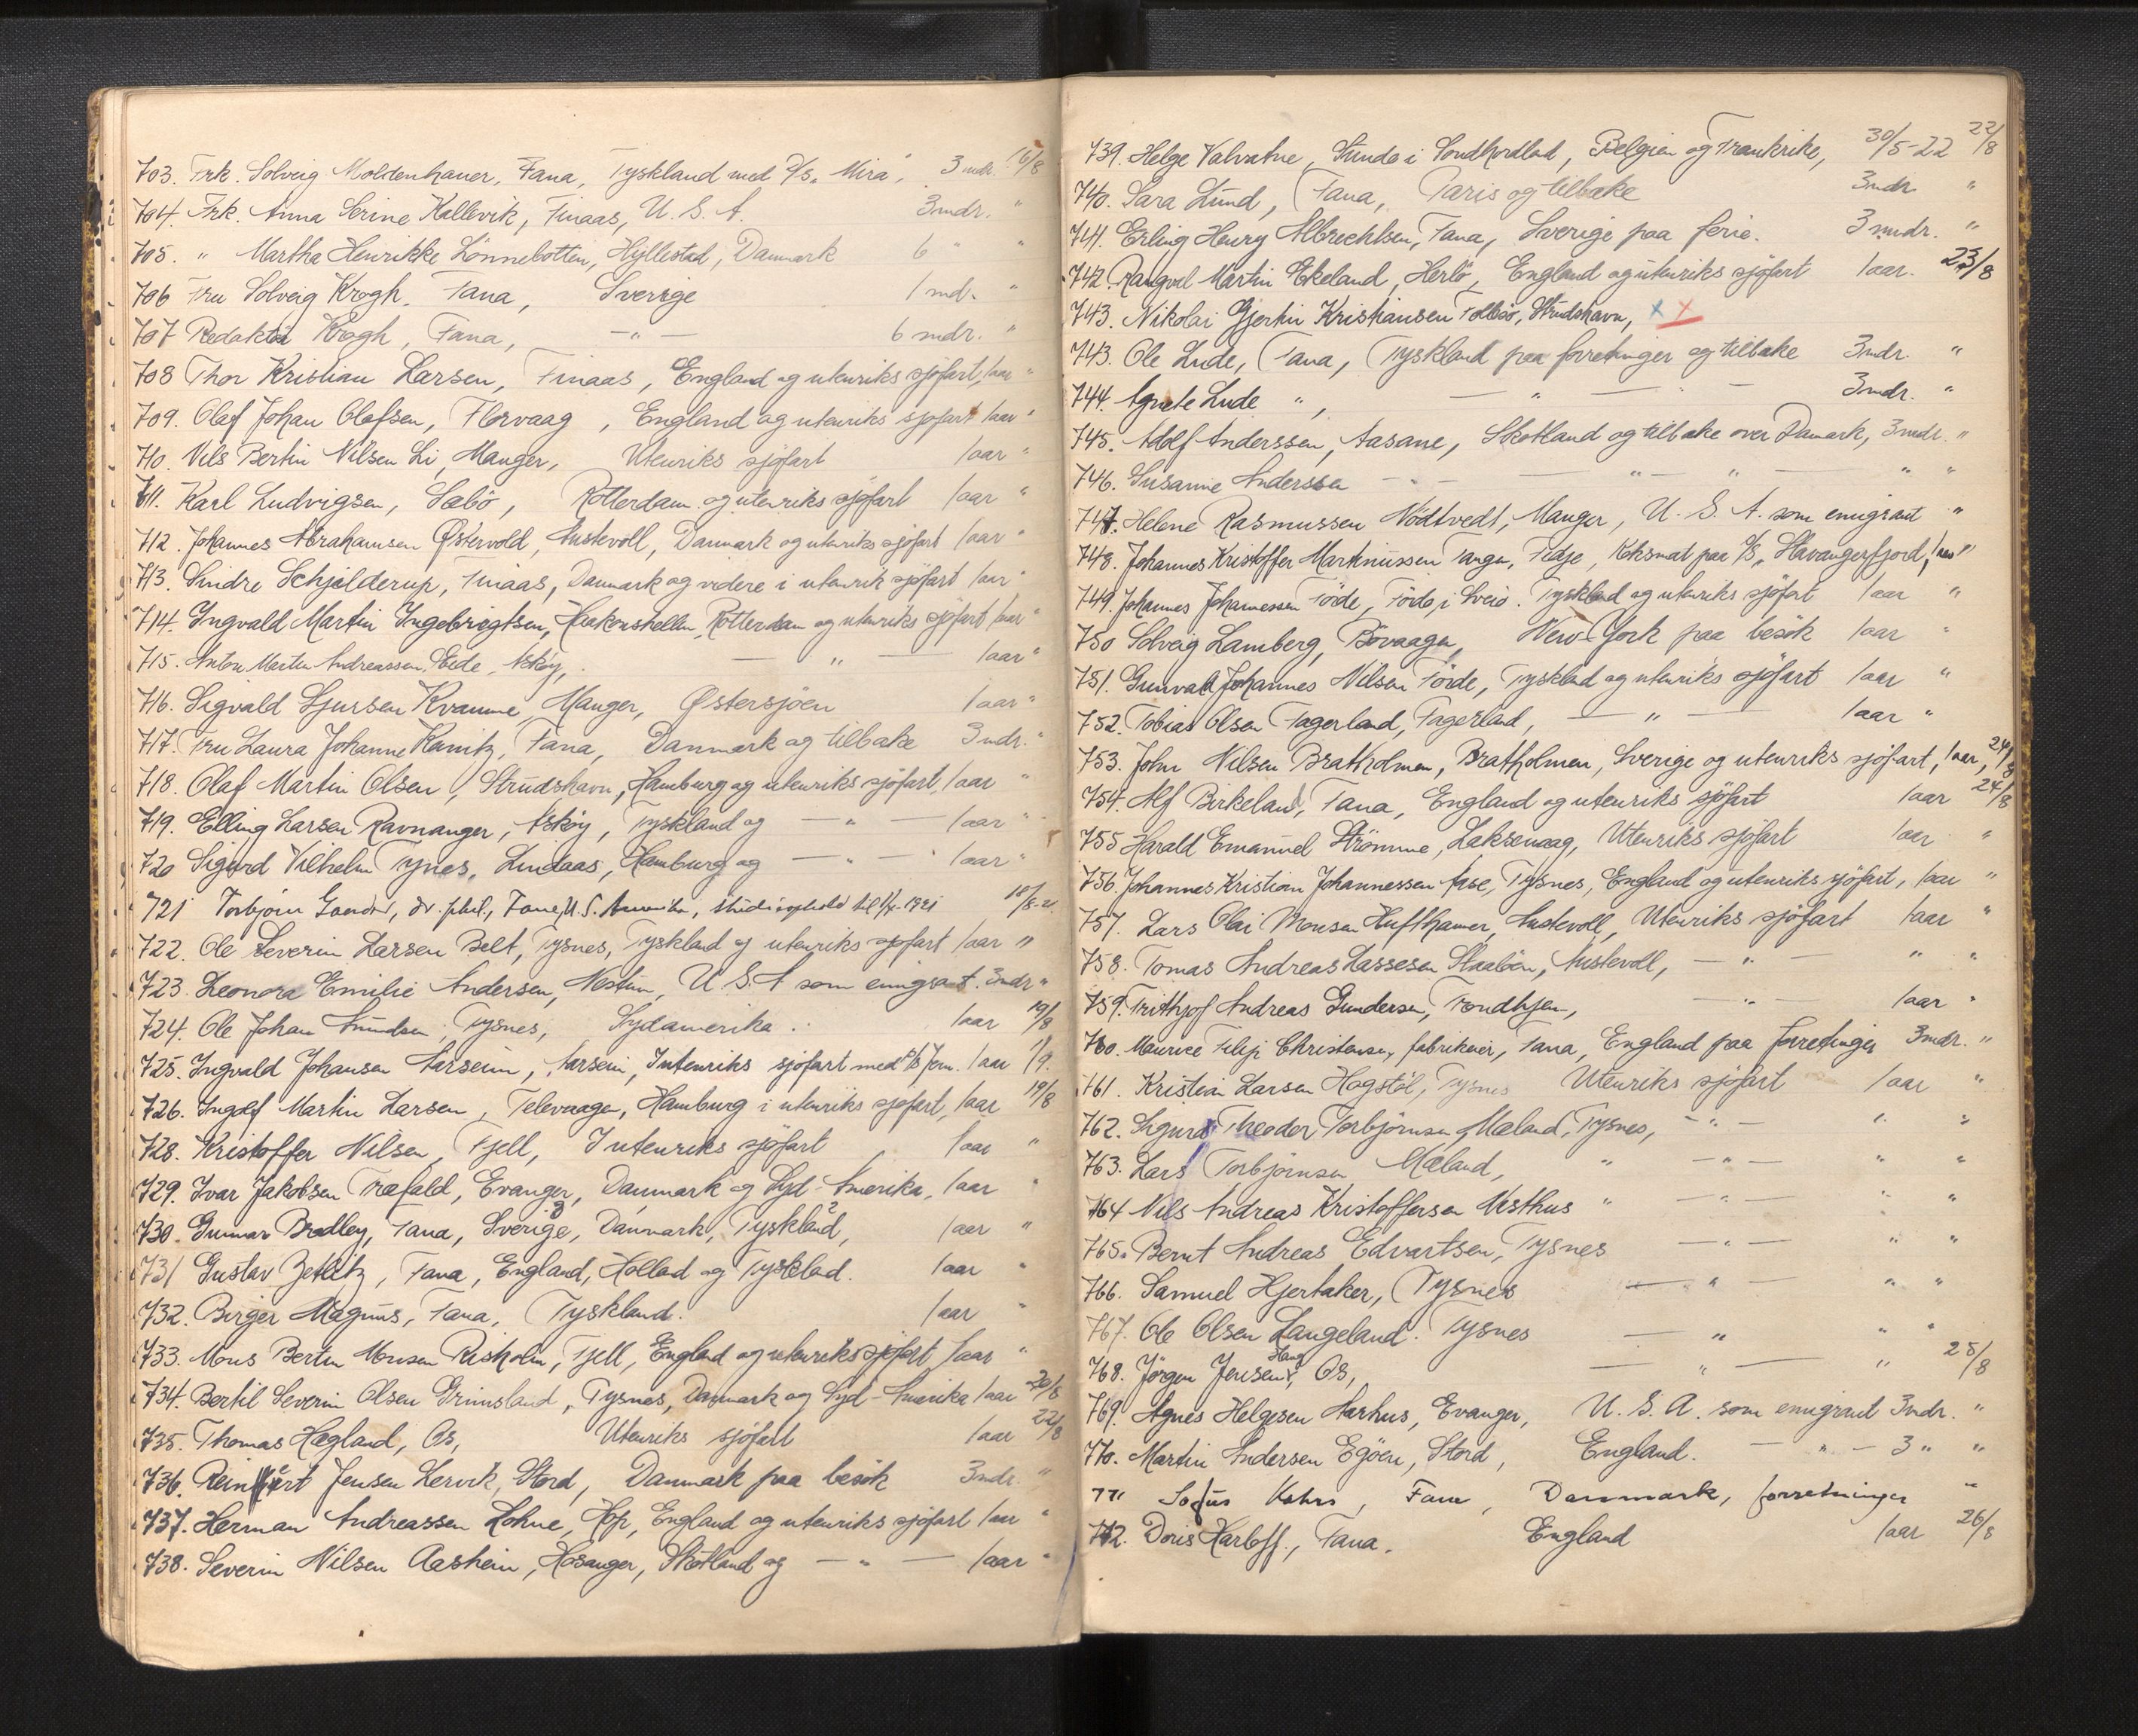 703. Frk. Solveig Moldenhauer, Fana, Tyskland med D/s. "Mira", 3 mdr. 16/8
704. Frk. Anna Serine Kallevik, Finaas, U. S. A. 3 mdr. "
705. " Martha Henrikke Lönnebotten, Hyllestad, Danmark 6 " "
706 Fru Solveig Krogh. Fana, Sverige 1 md. "
707 Redaktör Krogh, Fana, — " — 6 mdr. "
708 Thor Kristian Larsen, Finaas, England og utenriks sjöfart, 1 aar "
709. Olaf Johan Olafsen, Florvaag, England og utenriks sjöfart 1 aar "
710. Nils Bertin Nilsen Li, Manger, Utenriks sjöfart 1 aar "
711. Karl Ludvigsen, Sæbö, Rotterdam og utenriks sjöfart 1 aar "
712. Johannes Abrahamsen Østervold, Austevoll, Danmark og utenriks sjöfart 1 aar "
713. Sindre Schjelderup, Finaas, Danmark og videre i utenrik sjöfart 1 aar "
714. Ingvald Martin Ingebrigtsen, Haakonshellen, Rotterdam og utenriks sjöfart 1 aar "
715. Anton Martin Andreassen Eide, Askøy, — " — 1 aar "
716. Sigvald Sjursen Kvamme, Manger, Østersjøen 1 aar "
717. Fru Laura Johanne Kanitz, Fana, Danmark og tilbake 3 mdr. "
718. Olaf Martin Olsen, Strudshavn, Hamburg og utenriks sjöfart, 1 aar "
719. Elling Larsen Ravnanger, Askøy, Tyskland og — " — 1 aar "
720 Sigurd Vilhelm Tynes, Lindaas, Hamburg og — " — 1 aar "
721 Torbjörn, dr. phil., Fana, U. S. Amerika, 18/8-21
722. Ole Severin Larsen Belt, Tysnes, Tyskland og utenriks sjöfart 1 aar "
723. Leonora Emilie Andersen, Nestun, U. S. A som emigrant. 3 mdr "
724. Ole Johan Amundsen, Tysnes, Sydamerika. 1 aar 19/8
725. Ingvald Johansen Aarseim, Aarseim, I utenriks sjöfart med 1 aar 1/9.
726. Ingolf Martin Larsen, Televaagen, Hamburg i utenriks sjöfart, 1 aar 19/8
728. Kristoffer Nilsen, Fjell, I utenriks sjöfart 1 aar "
729. Ivar Jakobsen Træfald, Evanger, Danmark og Syd-Amerika, 1 aar "
730. Gunnar Bradley, Fana, Sverige, Danmark, Tyskland, 1 aar "
731 Gustav Zetlitz, Fana, England, Holland og Tyskland. 1 aar "
732. Birger Magnus, Fana, Tyskland. 1 aar "
733. Mons Bertin Monsen Risholm, Fjell, England og utenriks sjöfart 1 aar "
734. Bertil Severin Olsen Grimsland, Tysnes, Danmark og Syd-Amerika 1 aar 20/8
735. Thomas Hægland, Os, Utenriks sjöfart 1 aar 22/8
736. Reinert Jensen Lervik, Stord, Danmark paa besök 3 mdr. "
737. Herman Andreassen Lohne, Hop, England og utenriks sjöfart 1 aar "
738. Severin Nilsen Aasheim, Hosanger, Skotland og — " — 1 aar "
739. Helge Valvatne, Stunda i Sondhordland, Belgien og Frankrike, 30/5-22 22/8
740. Sara Lund, Fana, Paris og tilbake 3 mdr. "
741. Erling Henry Albrechtsen, Fana, Sverige paa ferie. 3 mndr. "
742. Rangval Martin Ekeland, Herlö, England og utenriks sjöfart 1 aar. 23/8
743. Nikolai Gjertin Kristiansen Follesö, Strudshavn, x x
743. Ole Lude, Fana, Tyskland paa forretninger og tilbake 3 mdr. "
744. Agnete Lude ", — " — 3 mdr. "
745. Adolf Anderssen, Aasane, Skotland og tilbake over Danmark, 3 mdr. "
746. Susanne Anderssen — " — — " — " — " "
747. Helene Rasmussen Nödtvedt, Manger, U. S. A. som emigrant "
748. Johannes Kristoffer Martinussen Tangen, Fedje, Koksmat paa S/S "Stavangerfjord", 1 aar "
749. Johannes Johannessen Förde, Förde i Sveio. Tyskland og utenriks sjöfart 1 aar "
750 Solveig Lamberg, Bövaagen, New-York paa besök 1 aar "
751. Gunvald Johannes Nilsen Förde, Tyskland og utenriks sjöfart 1 aar "
752. Tobias Olsen Fagerland, Fagerland, — " — 1 aar "
753. John Nilsen Bratholmen, Bratholmen, Sverige og utenriks sjöfart, 1 aar, 24/8
754. Alf Birkeland, Fana, England og utenriks sjöfart 1 aar 24/8
755 Harald Emanuel Strömme, Laksevaag, Utenriks sjöfart 1 aar "
756. Johannes Kristian Johannessen Aase, Tysnes, England og utenriks sjöfart, 1 aar "
757. Lars Olai Monsen Hufthamer, Austevoll, Utenriks sjöfart 1 aar "
758. Tomas Andreas Lassesen Staalöen, Austevoll, — " — " "
759. Frithjof Andreas Gundersen, Trondhjem, — " 1 aar "
760. Maurice Filip Christensen, fabrikeier, Fana, England paa forretinger 3 mdr. "
761. Kristian Larsen Hagstöl, Tysnes Utenriks sjöfart 1 aar "
762. Sigurd Theodor Torbjörnsen Mæland, Tysnes, — " — " "
763. Lars Torbjörnsen Mæland, " — " — " "
764 Nils Andreas Kristoffersen Vesthus " — " — " "
765. Bernt Andreas Edvartsen, Tysnes — " — " "
766. Samuel Hjertaker, Tysnes — " — " "
767. Ole Olsen Langeland. Tysnes — " " "
768. Jörgen Jensen Haug, Os, — " — " 25/8
769. Agnes Helgesen Aarhus, Evanger, U. S. A. som emigrant 3 mdr. "
770. Martin Andersen Egöen, Stord, England. — " — 3 " "
771 Sofus Kahrs, Fana, Danmark, forretninger "
772. Doris Harloff., Fana. England 1 aar 26/8